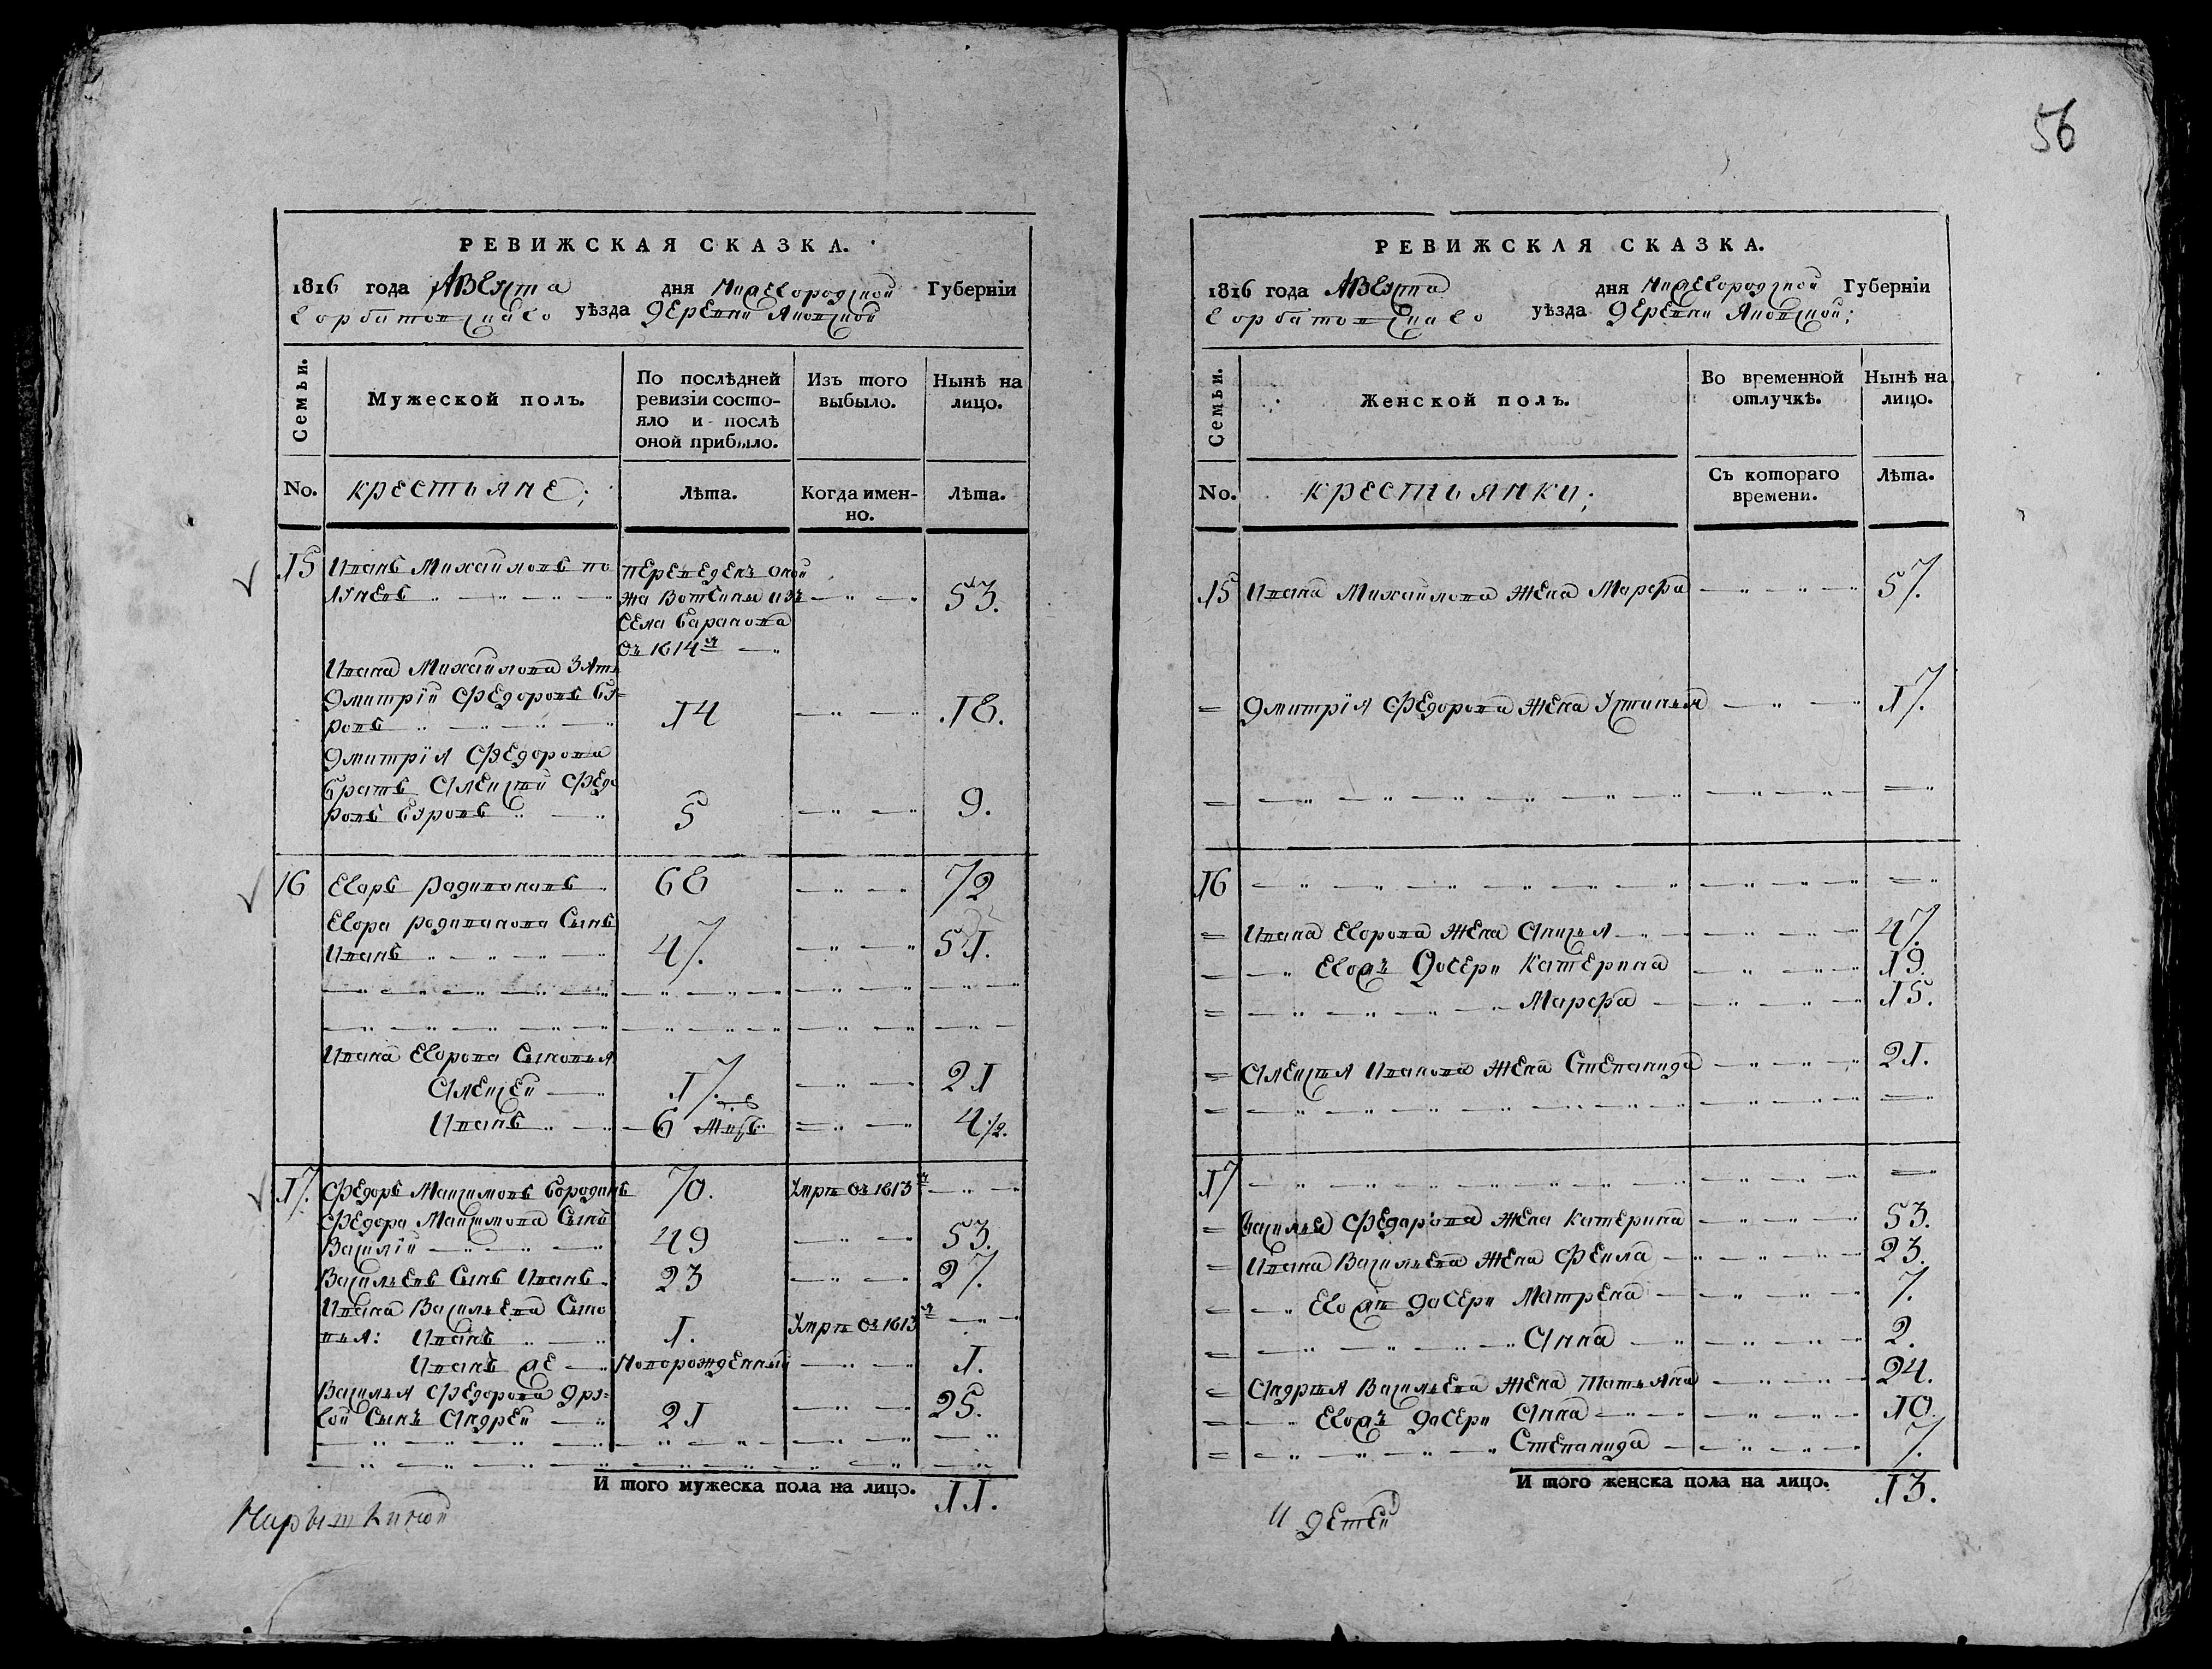 56
РЕВИЖСКАЯ СКАЗКА.
1816 года Августа дня Нижегородской Губернїи
Горбатовскаго уѣзда Деревни Яновской
Семьи.
Мужеской полъ.
По послѣдней ревизїи состо-
яло и послѣ оной прибыло.
Изъ того выбыло.
Нынѣ на лицо.
No. крестьяне;
Лѣта.
Когда имен-
но.
Лѣта.
15 Иванъ Михайловъ по
переведенъ оной
жа Вотчины изъ 53.
села Баранова
въ 1814м
Ивана Михайлова Зять
Дмитрїй Федоровъ Бу=
ровъ 14 18.
Дмитрїя Федорова
братъ Алексѣй Федо
ровъ Буровъ 5 9.
16 Егоръ Родивоновъ 68 72
Егора Родивонова Сынъ
Иванъ 47. 51.
Ивана Егорова Сыновья
Алексей 17. 21
Иванъ 6 4 1/2.
17. Федоръ Максимовъ Бородинъ 70. Умре въ 1813м
Федора Максимова Сынъ
Василїй 49 53.
Васильевъ Сынъ Иванъ 23 27.
Ивана Васильева Сыно
вья: Иванъ 1. Умре въ 1813м
Иванъ же Новорожденный 1.
Василья Федорова дру=
гой Сынъ Андрей 21 25.
И того мужеска пола на лицо. 11.
РЕВИЖСКАЯ СКАЗКА.
1816 года Августа дня Нижегородской Губернїи
Горбатовскаго уѣзда Деревни Яновской;
Семьи.
Женской полъ.
Во временной отлучкѣ.
Нынѣ на лицо.
No. крестьянки;
Съ котораго времени.
Лѣта.
15 Ивана Михайлова жена Марфа 57.
Дмитрїя Федорова жена Устинья 17.
16
Ивана Егорова жена Аксья 47.
Его жъ Дочери Катерина 19.
Марфа 15.
Алексѣя Иванова жена Степанида 21.
17
Василья Федорова жена Катерина 53.
Ивана Васильева жена Фекла 23.
Его же дочери Матрена 7.
Анна 2.
Андрѣя Васильева жена Татьяна 24.
Его жъ дочери Анна 10.
Степанида 7.
И того женска пола на лицо. 13.
И детей